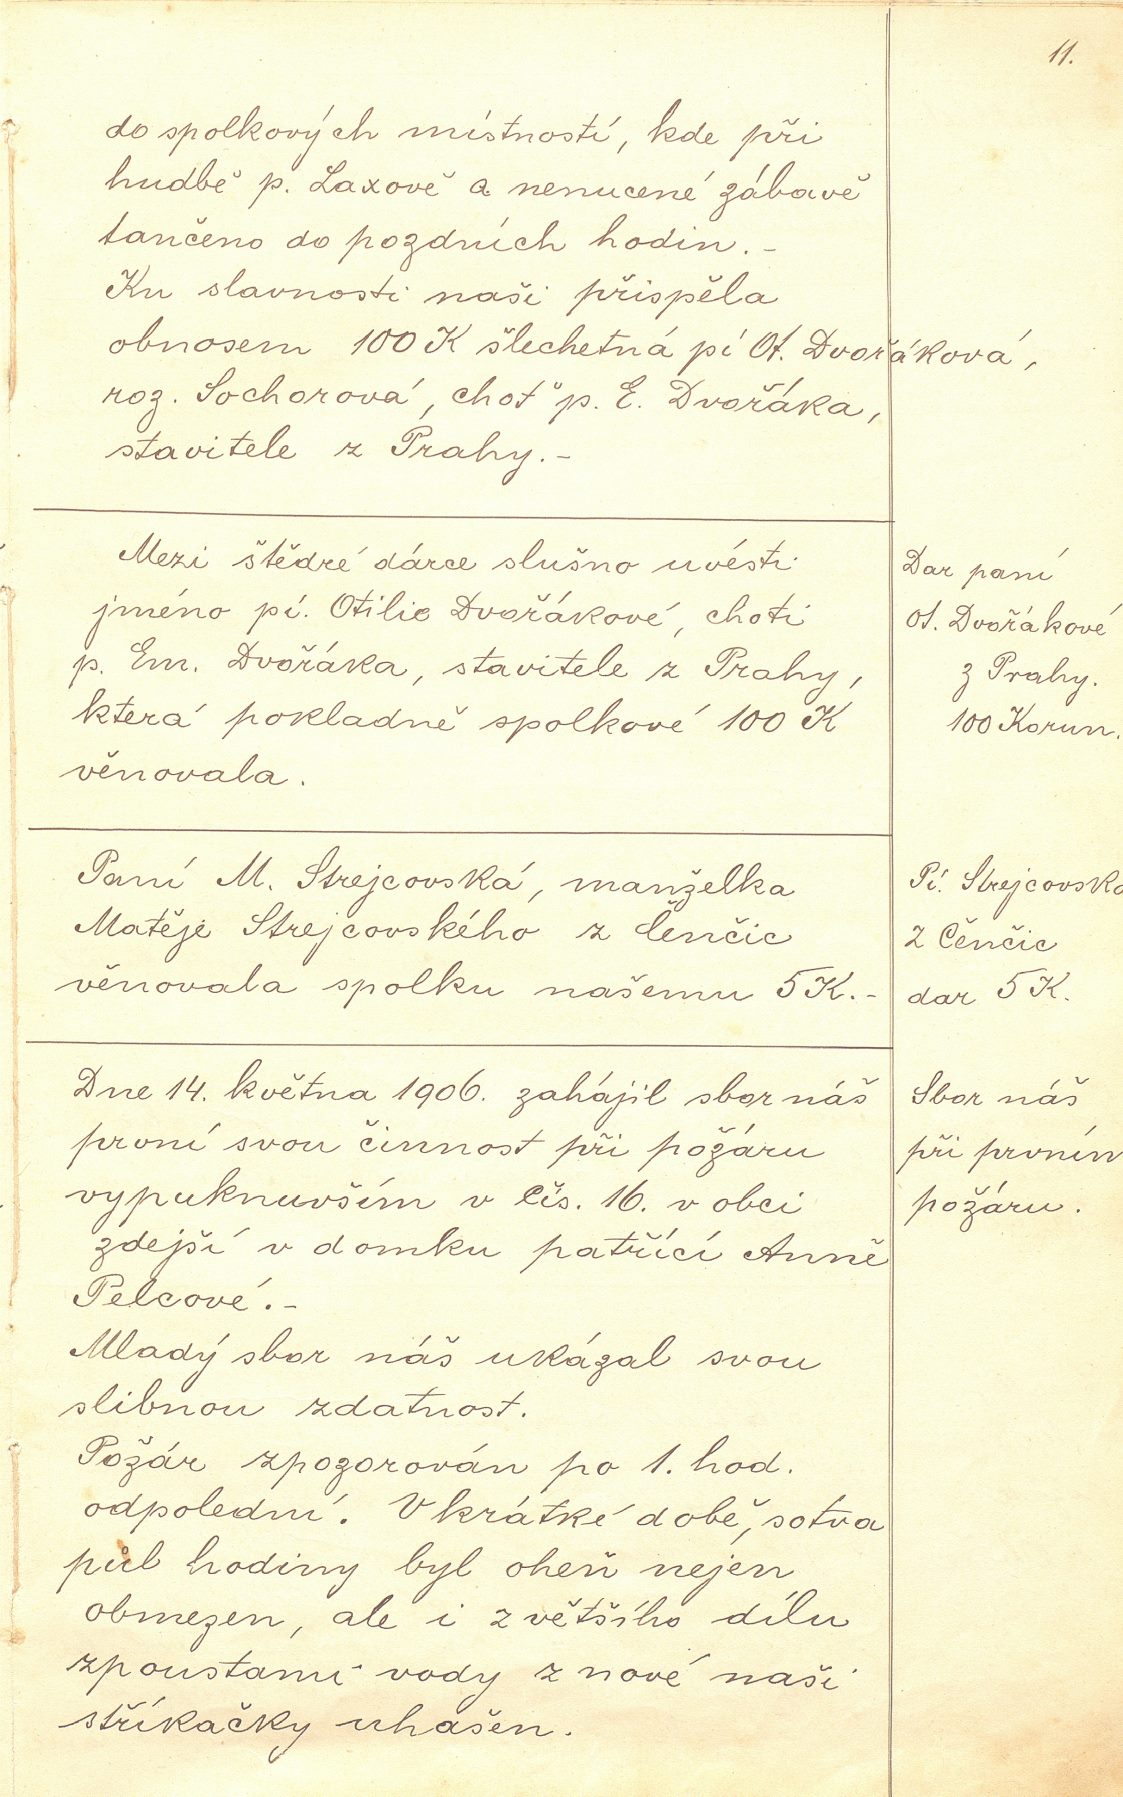 11.
do spolkových místností, kde při
hudbě p. Laxově a nenucené zábavě
tančeno do pozdních hodin.-
Ku slavnosti naši přispěla
obnosem 100 K šlechetná pí Ot. Dvořáková,
roz. Sochorová, choť p. E. Dvořáka,
stavitele z Prahy.-
Mezi štědré dárce slušno uvésti
jméno pí. Otilie Dvořákové, choti
p. Em. Dvořáka, stavitele z Prahy,
která pokladně spolkové 100 K
věnovala.
Dar paní
Ot. Dvořákové
z Prahy.
100 Korun.
Paní M. Strejcovská, manželka
Matěje Strejcovského z Čenčic
věnovala spolku našemu 5 K.-
Pí. Strejcovská
z Čěnčic
dar 5 K.
Dne 14. května 1906. zahájil sbor náš
první svou činnost při požáru
vypuknuvším v čís. 16. v obci
zdejší v domku patřící Anně
Pelcové.-
Mladý sbor náš ukázal svou
slibnou zdatnost.
Požár zpozorován po 1. hod.
odpolední. V krátké době, sotva
půl hodiny byl oheň nejen
obmezen, ale i z většího dílu
zpoustami vody z nové naši
stříkačky uhašen.
Sbor náš
při prvním
požáru.